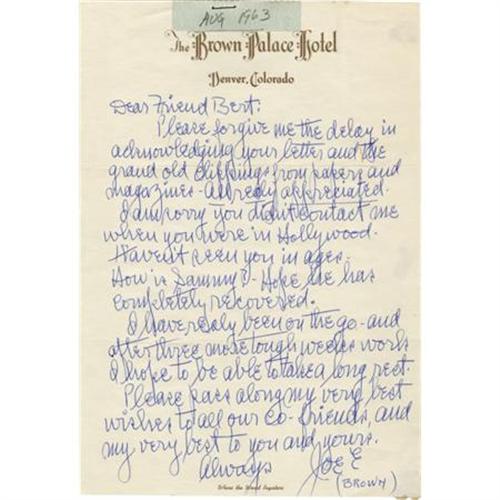 AUG 1963
The Brown Palace Hotel
Denver, Colorado
Dear Friend Bert:
Please forgive me the delay in
acknowledging your letter and the
grand old clippings from papers and
magazines - all really appreciated.
I am sorry you didn't contact me
when you were in Hollywood -
Haven't seen you in ages.
How is Sammy? - Hope he has
completely recovered.
I have really been on the go - and
after three more tough weeks work
I hope to be able to take a long rest.
Please pass along my very best
wishes to all our co-friends, and
my very best to you and yours.
Always JOE E
(BROWN)
Where the World Registers